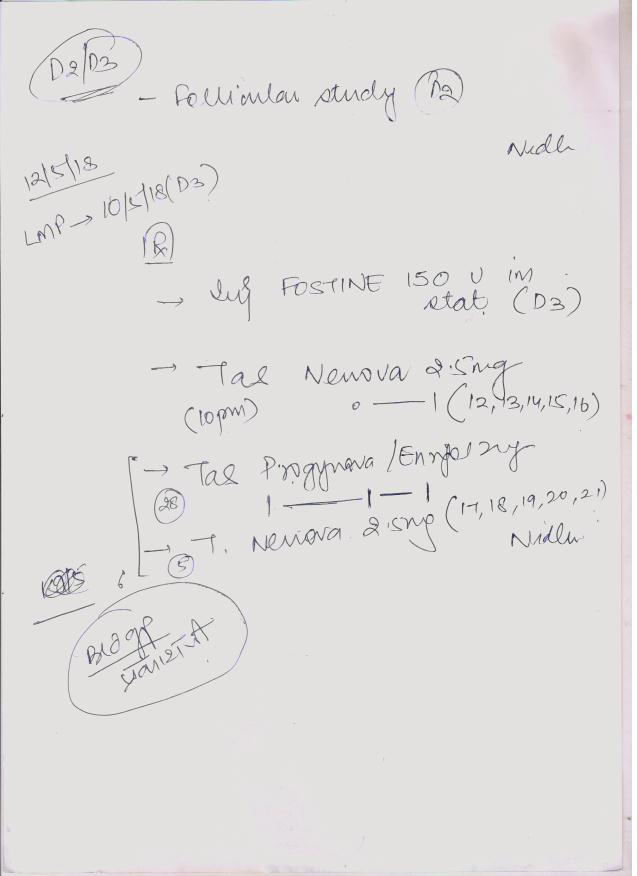 D2/D3
- Follicular study (D2)
Nidhi
12/5/18
LMP → 10/5/18 (D3)
Rx
→ Inj FOSTINE 150 U im
stat. (D3)
→ Tab Nenova 2.5mg
(10pm) 0 — 1 (12,13,14,15,16)
→ Tab Progynova / 2mg
(28) 1 — 1 — 1
→ T. Nenova 2.5mg (17,18,19,20,21)
(5) Nidhi